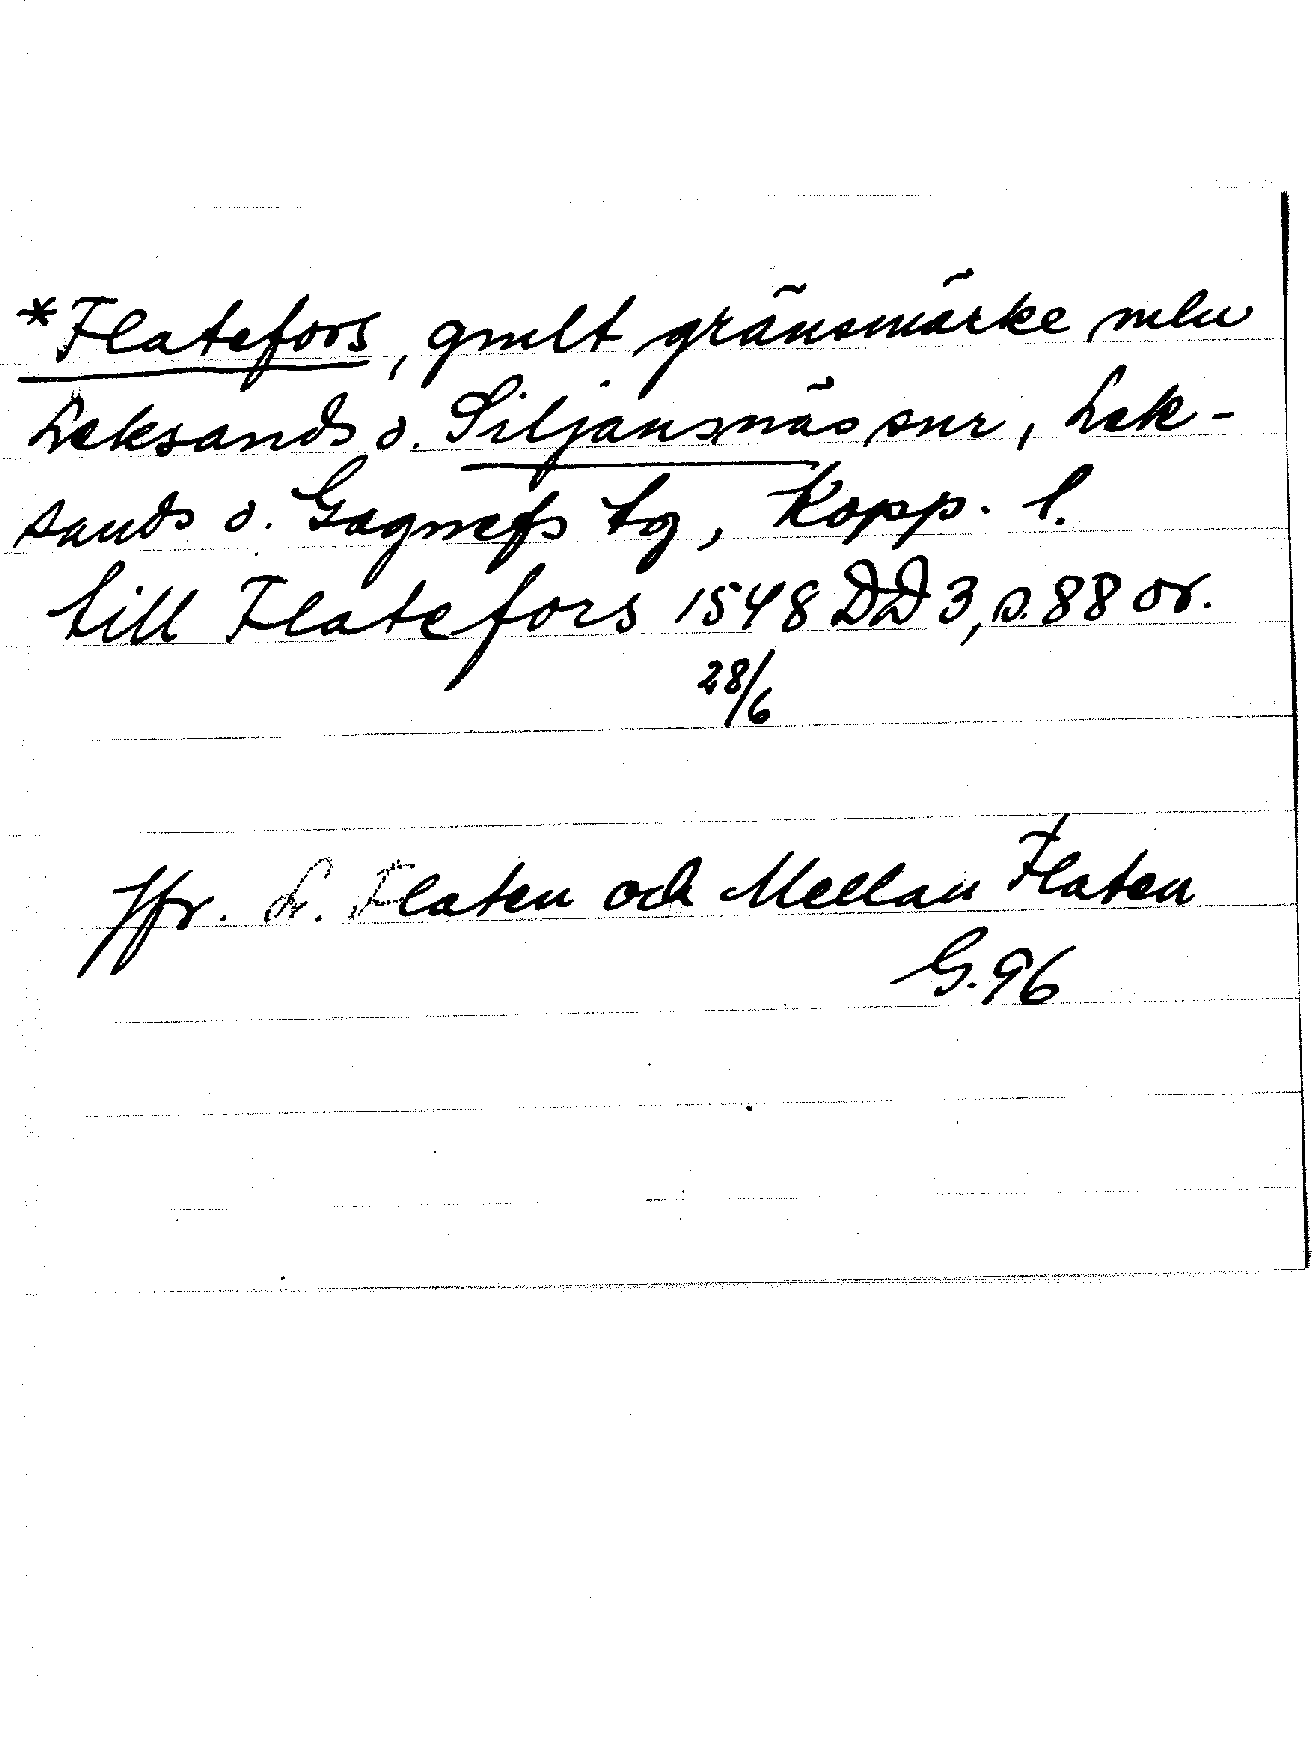 *Flatefors, gmlt gränsmärke mln
Leksands o. Siljansnäs snr, Lek-
sands o. Gagnefs tg, Kopp. l.
till Flatefors 1548 DD 3, s. 88 or.
28/6
Jfr. L. Flaten och Mellan Flaten
G. 96